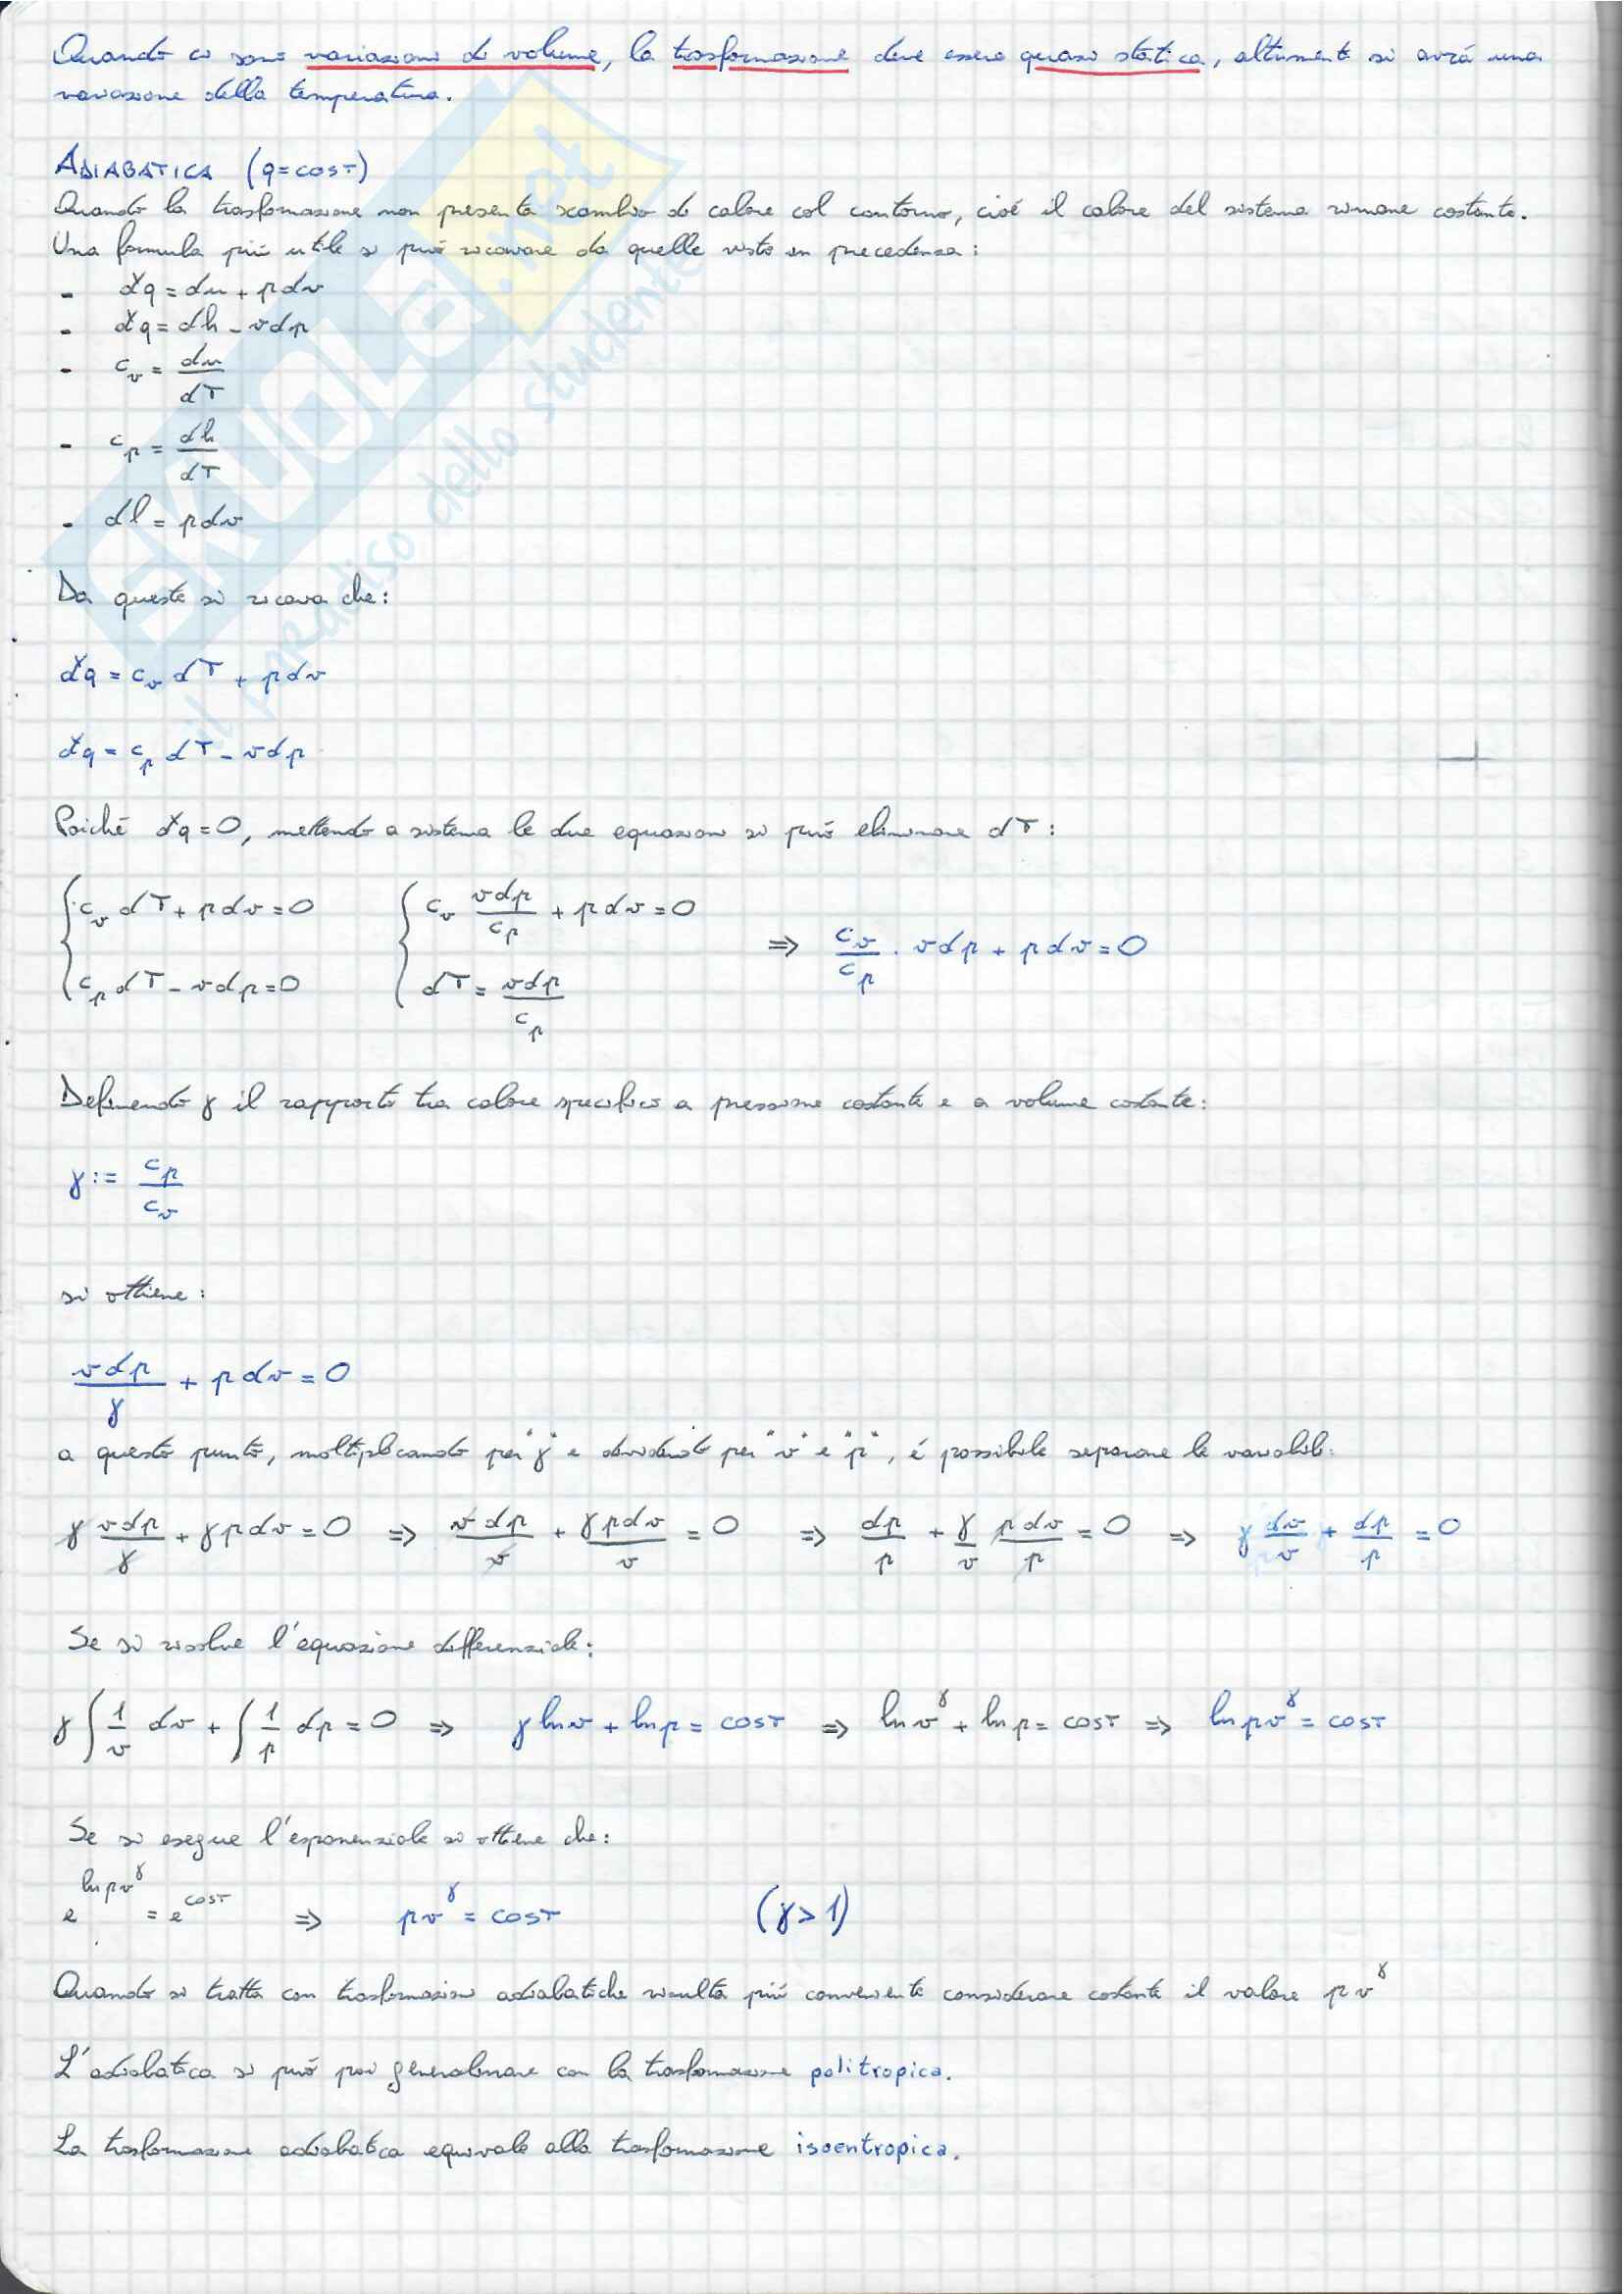 Quando ci sono variazioni di volume, la trasformazione deve essere quasi statica, altrimenti si avrà una
variazione della temperatura.
ADIABATICA (q=COST)
Quando la trasformazione non presenta scambio di calore col contorno, cioé il calore del sistema rimane costante.
Una formula piú utile si puó ricavare da quelle viste in precedenza:
- đq = du + pdv
- đq = dh - vdp
- c_v = du/dT
- c_p = dh/dT
- dl = pdv
Da queste si ricava che:
đq = c_v dT + pdv
đq = c_p dT - vdp
Poiché đq=0, mettendo a sistema le due equazioni si puó eliminare dT:
{ c_v dT + pdv = 0   { c_v vdp/c_p + pdv = 0   ⇒ c_v/c_p · vdp + pdv = 0
{ c_p dT - vdp = 0   { dT = vdp/c_p
Definendo γ il rapporto tra calore specifico a pressione costante e a volume costante:
γ := c_p/c_v
si ottiene:
vdp/γ + pdv = 0
a questo punto, moltiplicando per "γ" e dividendo per "v" e "p", é possibile separare le variabili:
γ vdp/γ + γpdv = 0 ⇒ vdp/v + γpdv/v = 0 ⇒ dp/p + γ/v pdv/p = 0 ⇒ γ dv/v + dp/p = 0
Se si risolve l'equazione differenziale:
γ∫ 1/v dv + ∫ 1/p dp = 0 ⇒ γ ln v + ln p = COST ⇒ ln v^γ + ln p = COST ⇒ ln pv^γ = COST
Se si esegue l'esponenziale si ottiene che:
e^{ln pv^γ} = e^{COST} ⇒ pv^γ = COST (γ > 1)
Quando si tratta con trasformazioni adiabatiche risulta piú conveniente considerare costante il valore pv^γ
L'adiabatica si puó poi generalizzare con la trasformazione politropica.
La trasformazione adiabatica equivale alla trasformazione isoentropica.
SKUOLA.net
il paradiso dello studente